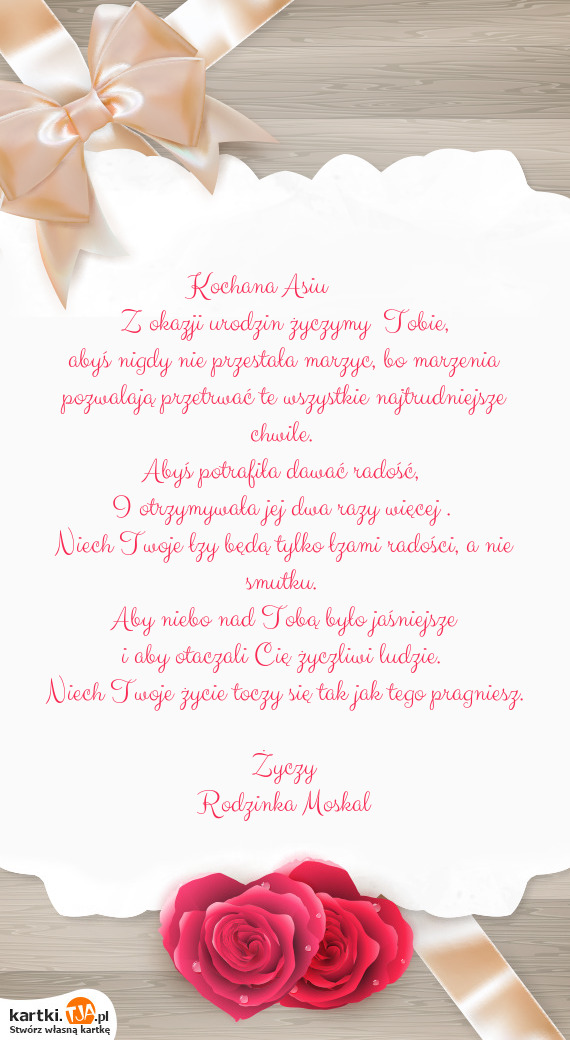 Kochana Asiu
Z okazji urodzin życzymy Tobie,
abyś nigdy nie przestała marzyc, bo marzenia
pozwalają przetrwać te wszystkie najtrudniejsze
chwile.
Abyś potrafiła dawać radość,
I otrzymywała jej dwa razy więcej .
Niech Twoje łzy będą tylko łzami radości, a nie
smutku.
Aby niebo nad Tobą było jaśniejsze
i aby otaczali Cię życzliwi ludzie.
Niech Twoje życie toczy się tak jak tego pragniesz.
Życzy
Rodzinka Moskal
kartki.TJA.pl
Stwórz własną kartkę